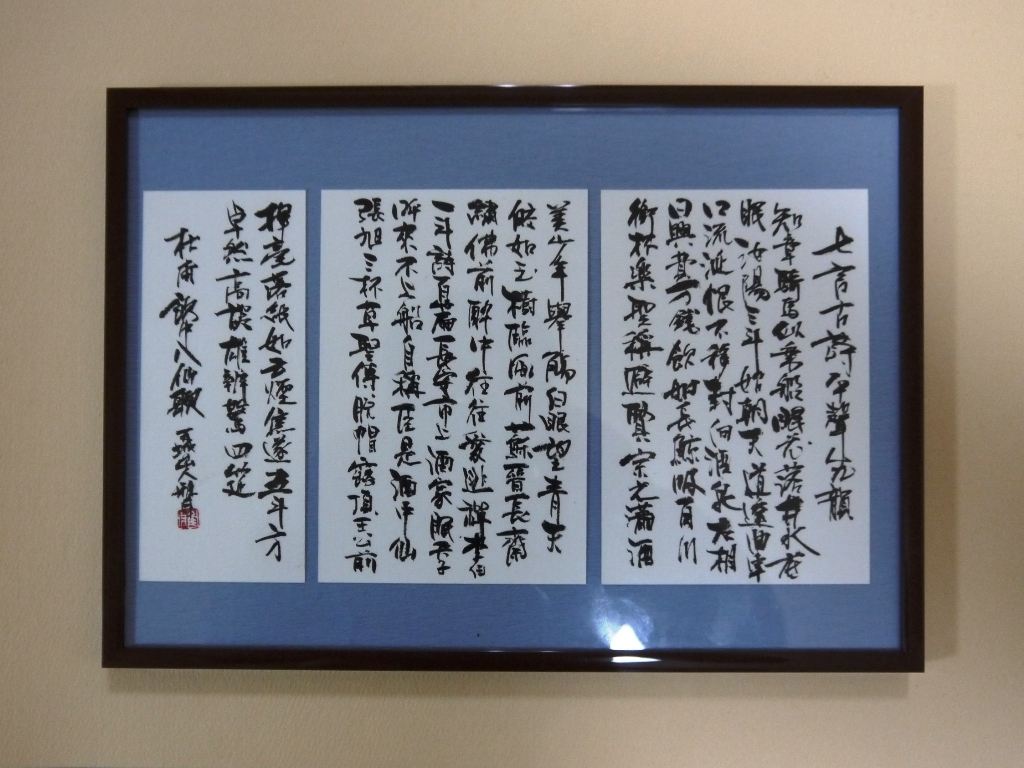 七言古詩平聲先韻
知章騎馬似乘船眼花落井水底
眠汝陽三斗始朝天道逢麴車
口流涎恨不移封向酒泉左相
日興費万錢飲如長鯨吸百川
銜杯樂聖稱避賢宗之瀟洒
美少年舉觴白眼望青天
皎如玉樹臨風前蘇晉長齋
繡佛前醉中往往愛逃禪李白
一斗詩百篇長安市上酒家眠天子
呼來不上船自稱臣是酒中仙
張旭三杯草聖傳脫帽露頂王公前
揮毫落紙如雲煙焦遂五斗方
卓然高談雄辯驚四筵
杜甫 飲中八仙歌